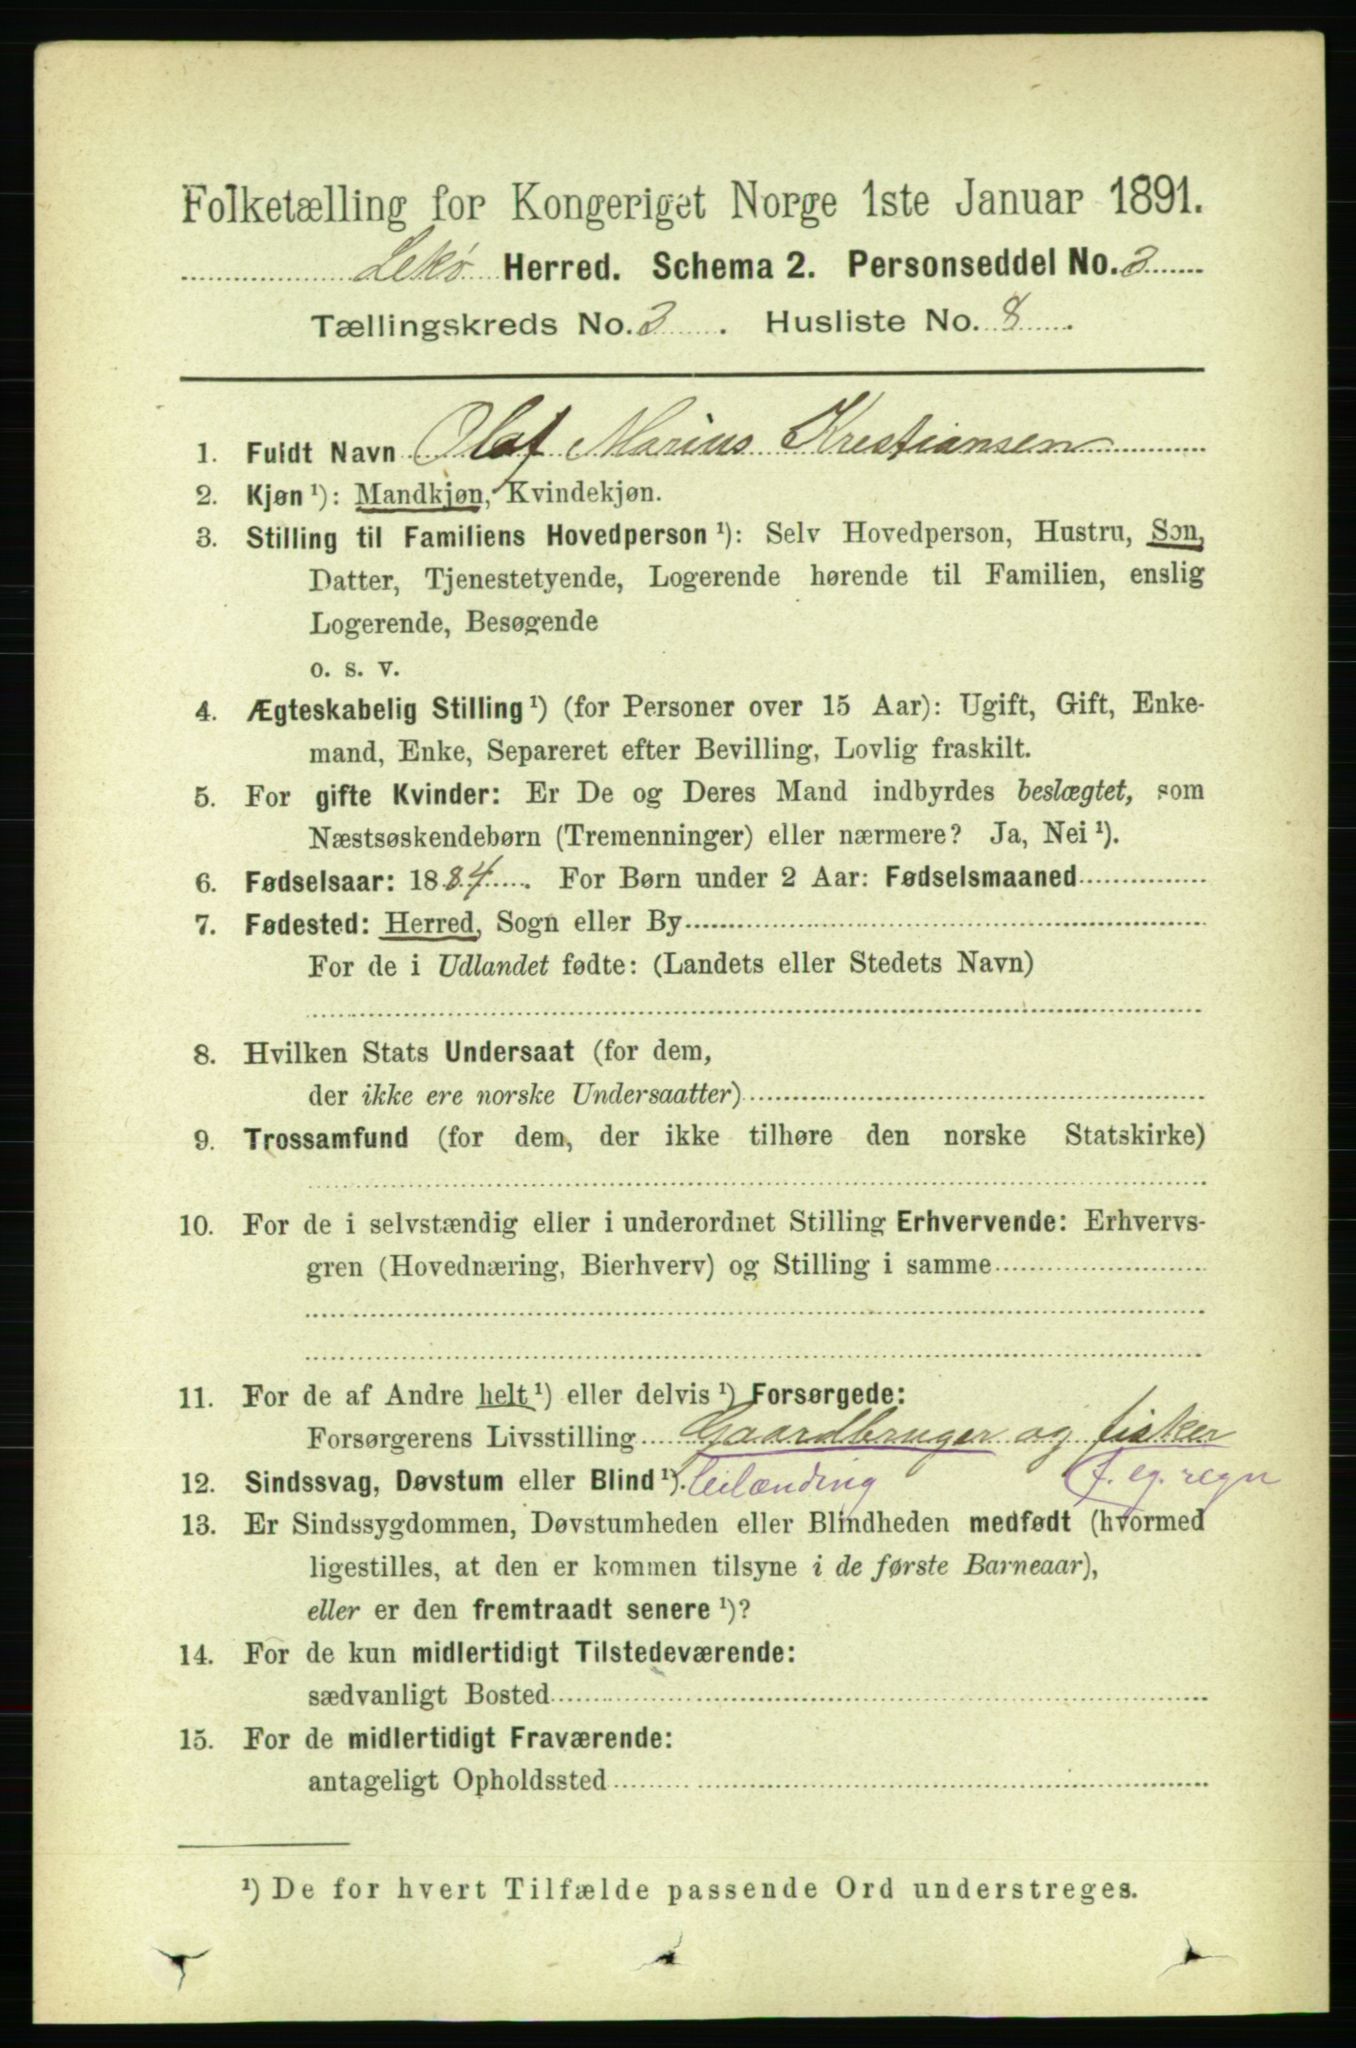 Folketælling for Kongeriget Norge 1ste Januar 1891.
Lekø Herred. Schema 2. Personseddel No. 3
Tællingskreds No. 3. Husliste No. 8.
1. Fuldt Navn Olaf Marius Krestiansen
2. Kjøn ¹): Mandkjøn, Kvindekjøn.
3. Stilling til Familiens Hovedperson ¹): Selv Hovedperson, Hustru, Søn,
Datter, Tjenestetyende, Logerende hørende til Familien, enslig
Logerende, Besøgende
o. s. v.
4. Ægteskabelig Stilling ¹) (for Personer over 15 Aar): Ugift, Gift, Enke-
mand, Enke, Separeret efter Bevilling, Lovlig fraskilt.
5. For gifte Kvinder: Er De og Deres Mand indbyrdes beslægtet, som
Næstsøskendebørn (Tremenninger) eller nærmere? Ja, Nei ¹).
6. Fødselsaar: 1884. For Børn under 2 Aar: Fødselsmaaned
7. Fødested: Herred, Sogn eller By
For de i Udlandet fødte: (Landets eller Stedets Navn)
8. Hvilken Stats Undersaat (for dem,
der ikke ere norske Undersaatter)
9. Trossamfund (for dem, der ikke tilhøre den norske Statskirke)
10. For de i selvstændig eller i underordnet Stilling Erhvervende: Erhvervs-
gren (Hovednæring, Bierhverv) og Stilling i samme
11. For de af Andre helt ¹) eller delvis ¹) Forsørgede:
Forsørgerens Livsstilling Gaardbruger og fisker
12. Sindssvag, Døvstum eller Blind ¹). leilænding f. eg. regn
13. Er Sindssygdommen, Døvstumheden eller Blindheden medfødt (hvormed
ligestilles, at den er kommen tilsyne i de første Barneaar),
eller er den fremtraadt senere ¹)?
14. For de kun midlertidigt Tilstedeværende:
sædvanligt Bosted
15. For de midlertidigt Fraværende:
antageligt Opholdssted
¹) De for hvert Tilfælde passende Ord understreges.